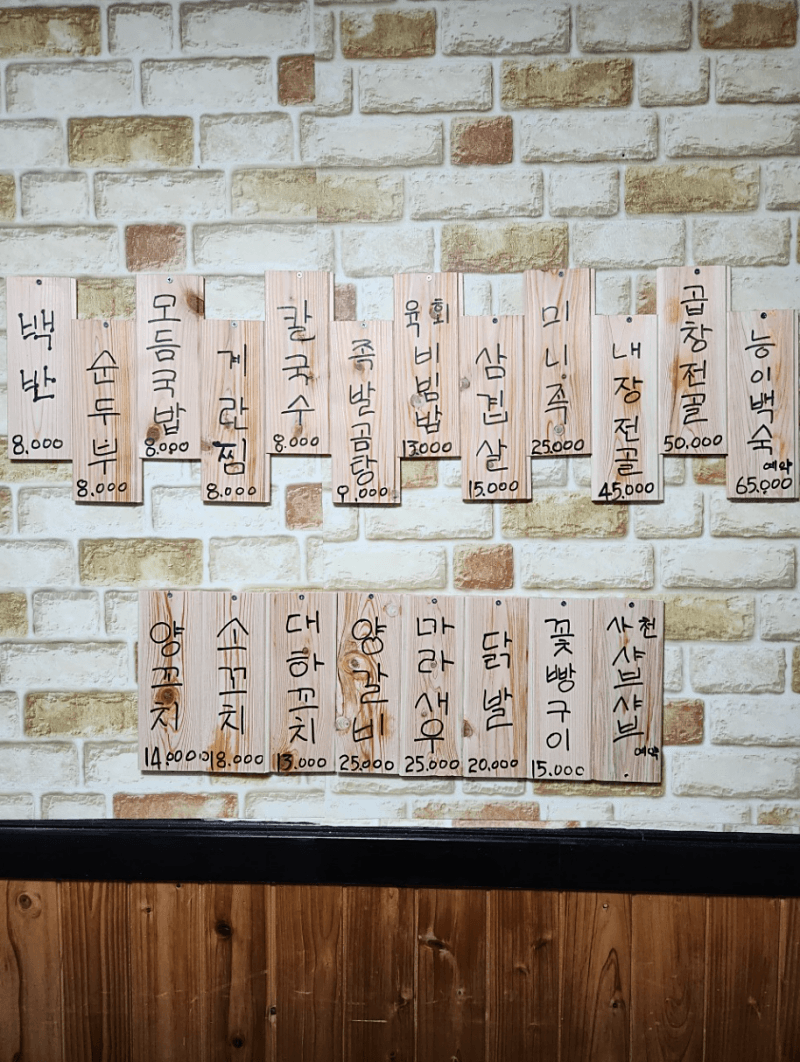 백반
8.000
순두부
8.000
모듬국밥
8.000
계란찜
8.000
칼국수
8.000
족발곰탕
9.000
육회비빔밥
13.000
삼겹살
15.000
미니족
25.000
내장전골
45.000
곱창전골
50.000
능이백숙
예약
65.000
양꼬치
14.000
소꼬치
18.000
대하꼬치
13.000
양갈비
25.000
마라새우
25.000
닭발
20.000
꽃빵구이
15.000
사천샤브샤브
예약